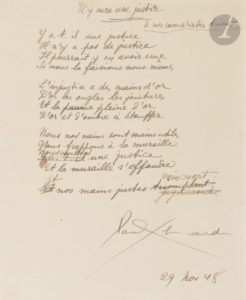 Il y aura une justice
à mes camarades
Y a t il une justice
Il n'y a pas de justice
Il pourrait y en avoir une
Si nous la faisions nous-mêmes
L'injustice a des mains d'or
D'or les ongles les jointures
Et la paume pleine d'or
D'or et d'ombre à étouffer
Mais nos mains sont mains utiles
Nous frappons à la muraille
il une justice
Et la muraille s'effondre
Et nos mains justes
Paul Eluard
29 Nov 48